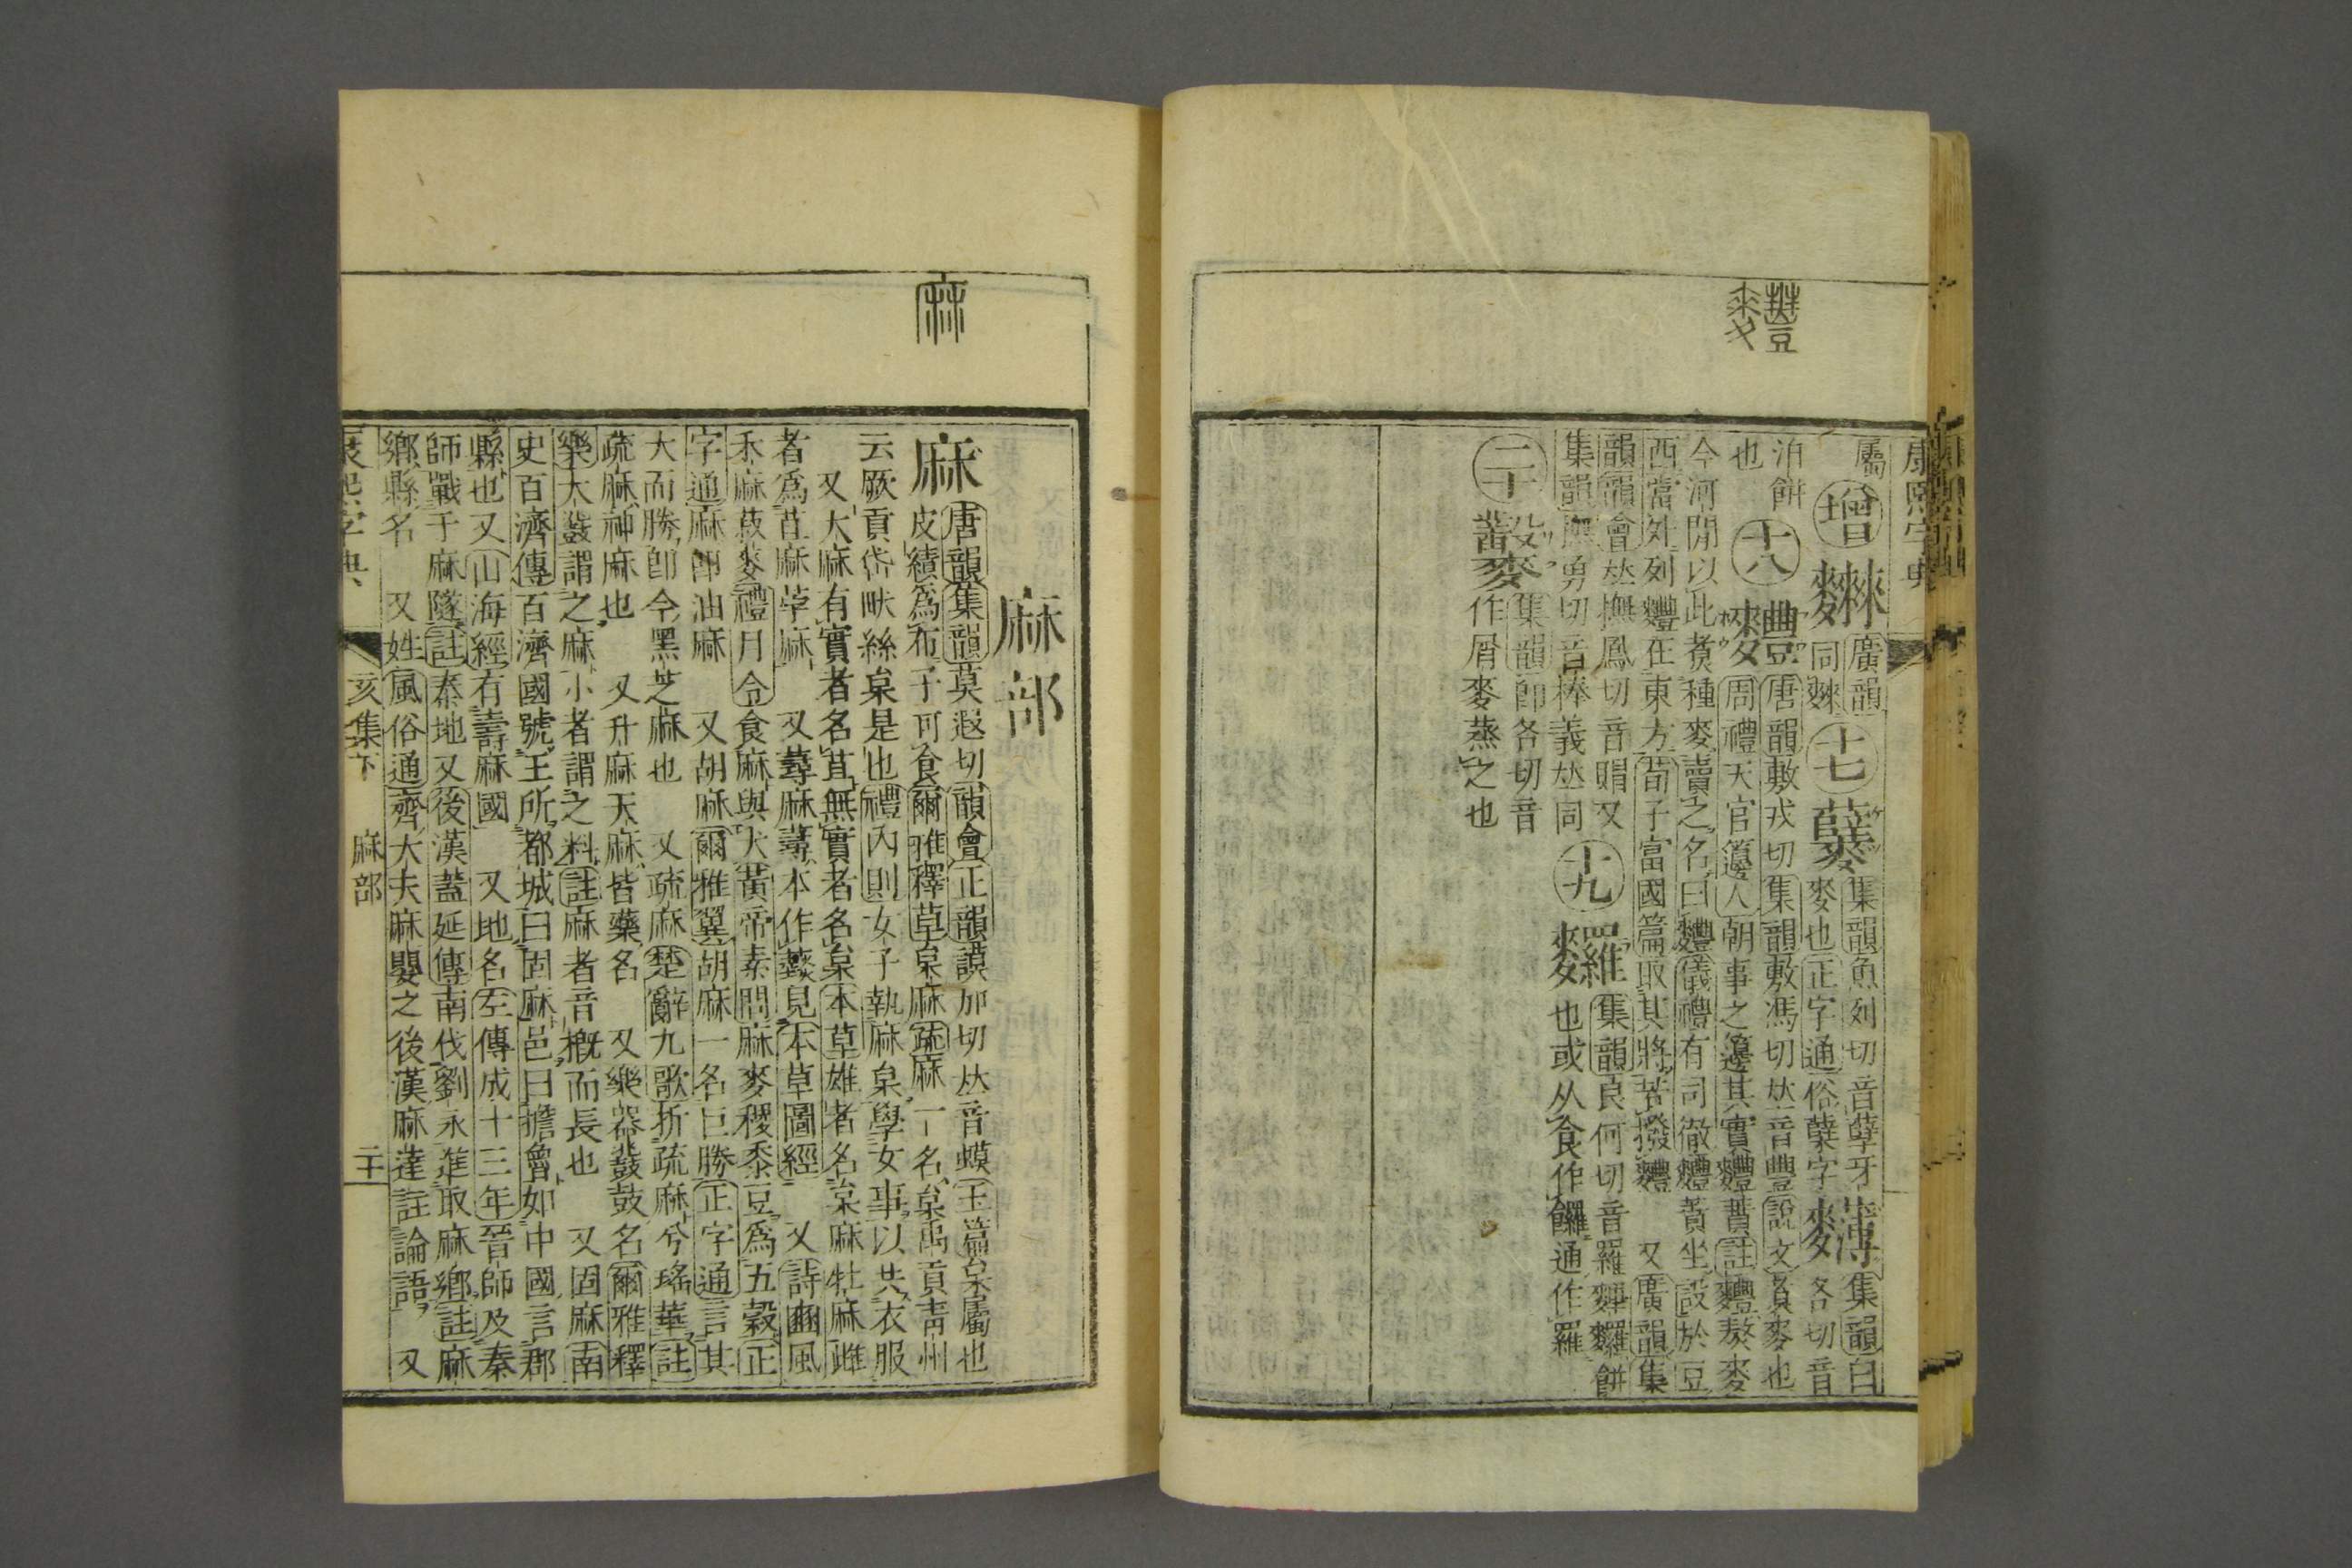 麷
康熙字典
屬 增 廣韻 十七 集韻魚列切音孽牙 集韻白
同 麥也正字通俗櫱字 各切音
泊餅 十八 麷 唐韻敷戎切集韻敷馮切𠀤音豐說文煑麥也
也 周禮天官籩人朝事之籩其實麷蕡註麷熬麥
今河閒以此煑種麥賣之名曰麷儀禮有司徹麷蕡坐設於豆
西當外列麷在東方荀子富國篇取其將若撥麷 又廣韻集
韻韻會𠀤撫鳳切音賵又 十九 集韻良何切音羅 餅
集韻撫勇切音捧義𠀤同 也或从食作饠通作羅
二十 集韻卽各切音
作屑麥蒸之也
麻
麻部
麻 唐韻集韻莫遐切韻會正韻謨加切𠀤音蟆玉篇枲屬也
皮績爲布子可食爾雅釋草枲麻疏麻一名枲禹貢靑州
云厥貢岱畎絲枲是也禮內則女子執麻枲學女事以共衣服
又大麻有實者名苴無實者名枲本草雄者名枲麻牡麻雌
者爲苴麻荸麻 又蕁麻蕁本作䕭見本草圖經 又詩豳風
禾麻菽麥禮月令食麻與犬黃帝素問麻麥稷黍豆爲五穀正
字通麻卽油麻 又胡麻爾雅翼胡麻一名巨勝正字通言其
大而勝卽今黑芝麻也 又疏麻楚辭九歌折疏麻兮瑤華註
疏麻神麻也 又升麻天麻皆藥名 又樂器鼗鼓名爾雅釋
樂大鼗謂之麻小者謂之料註麻者音槪而長也 又固麻南
史百濟傳百濟國號王所都城曰固麻邑曰擔魯如中國言郡
縣也又山海經有壽麻國 又地名左傳成十三年晉師及秦
師戰于麻隧註秦地又後漢蓋延傳南伐劉永進取麻鄕註麻
鄕縣名 又姓風俗通齊大夫麻嬰之後漢麻達註論語 又
康熙字典 亥集下 麻部 二十